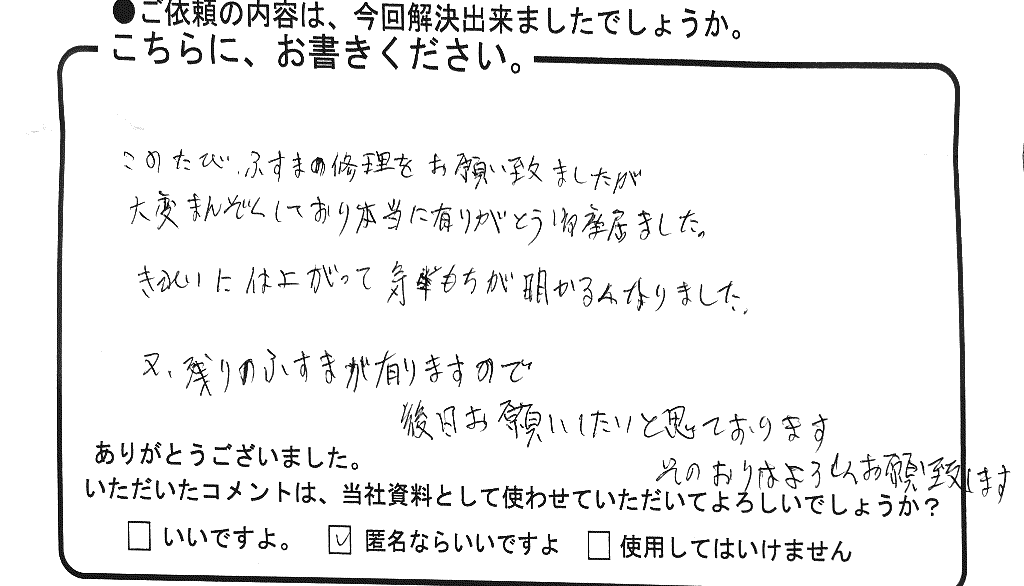 ●ご依頼の内容は、今回解決出来ましたでしょうか。
こちらに、お書きください。
このたび、ふすまの修理をお願い致ましたが
大変まんぞくしており本当に有りがとう御座居ました。
きれいに仕上がって気もちが明かるくなりました。
又、残りのふすまが有りますので
後日お願いしたいと思っております
そのおりはよろしくお願い致します
ありがとうございました。
いただいたコメントは、当社資料として使わせていただいてよろしいでしょうか？
□ いいですよ。 ☑ 匿名ならいいですよ □ 使用してはいけません